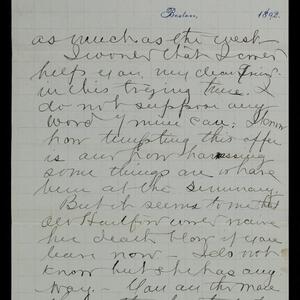 Boston, 1892
as much as the week
I would that I could
help you, my dear friend
in this trying time. I
do not suppose any
word of mine can; I know
how tempting this offer
is and how harassing
some things are where
been at the seminary.
But it seems to me that
would receive
her death blow if you
leave now – I do not
know but she has any
way. You are the more